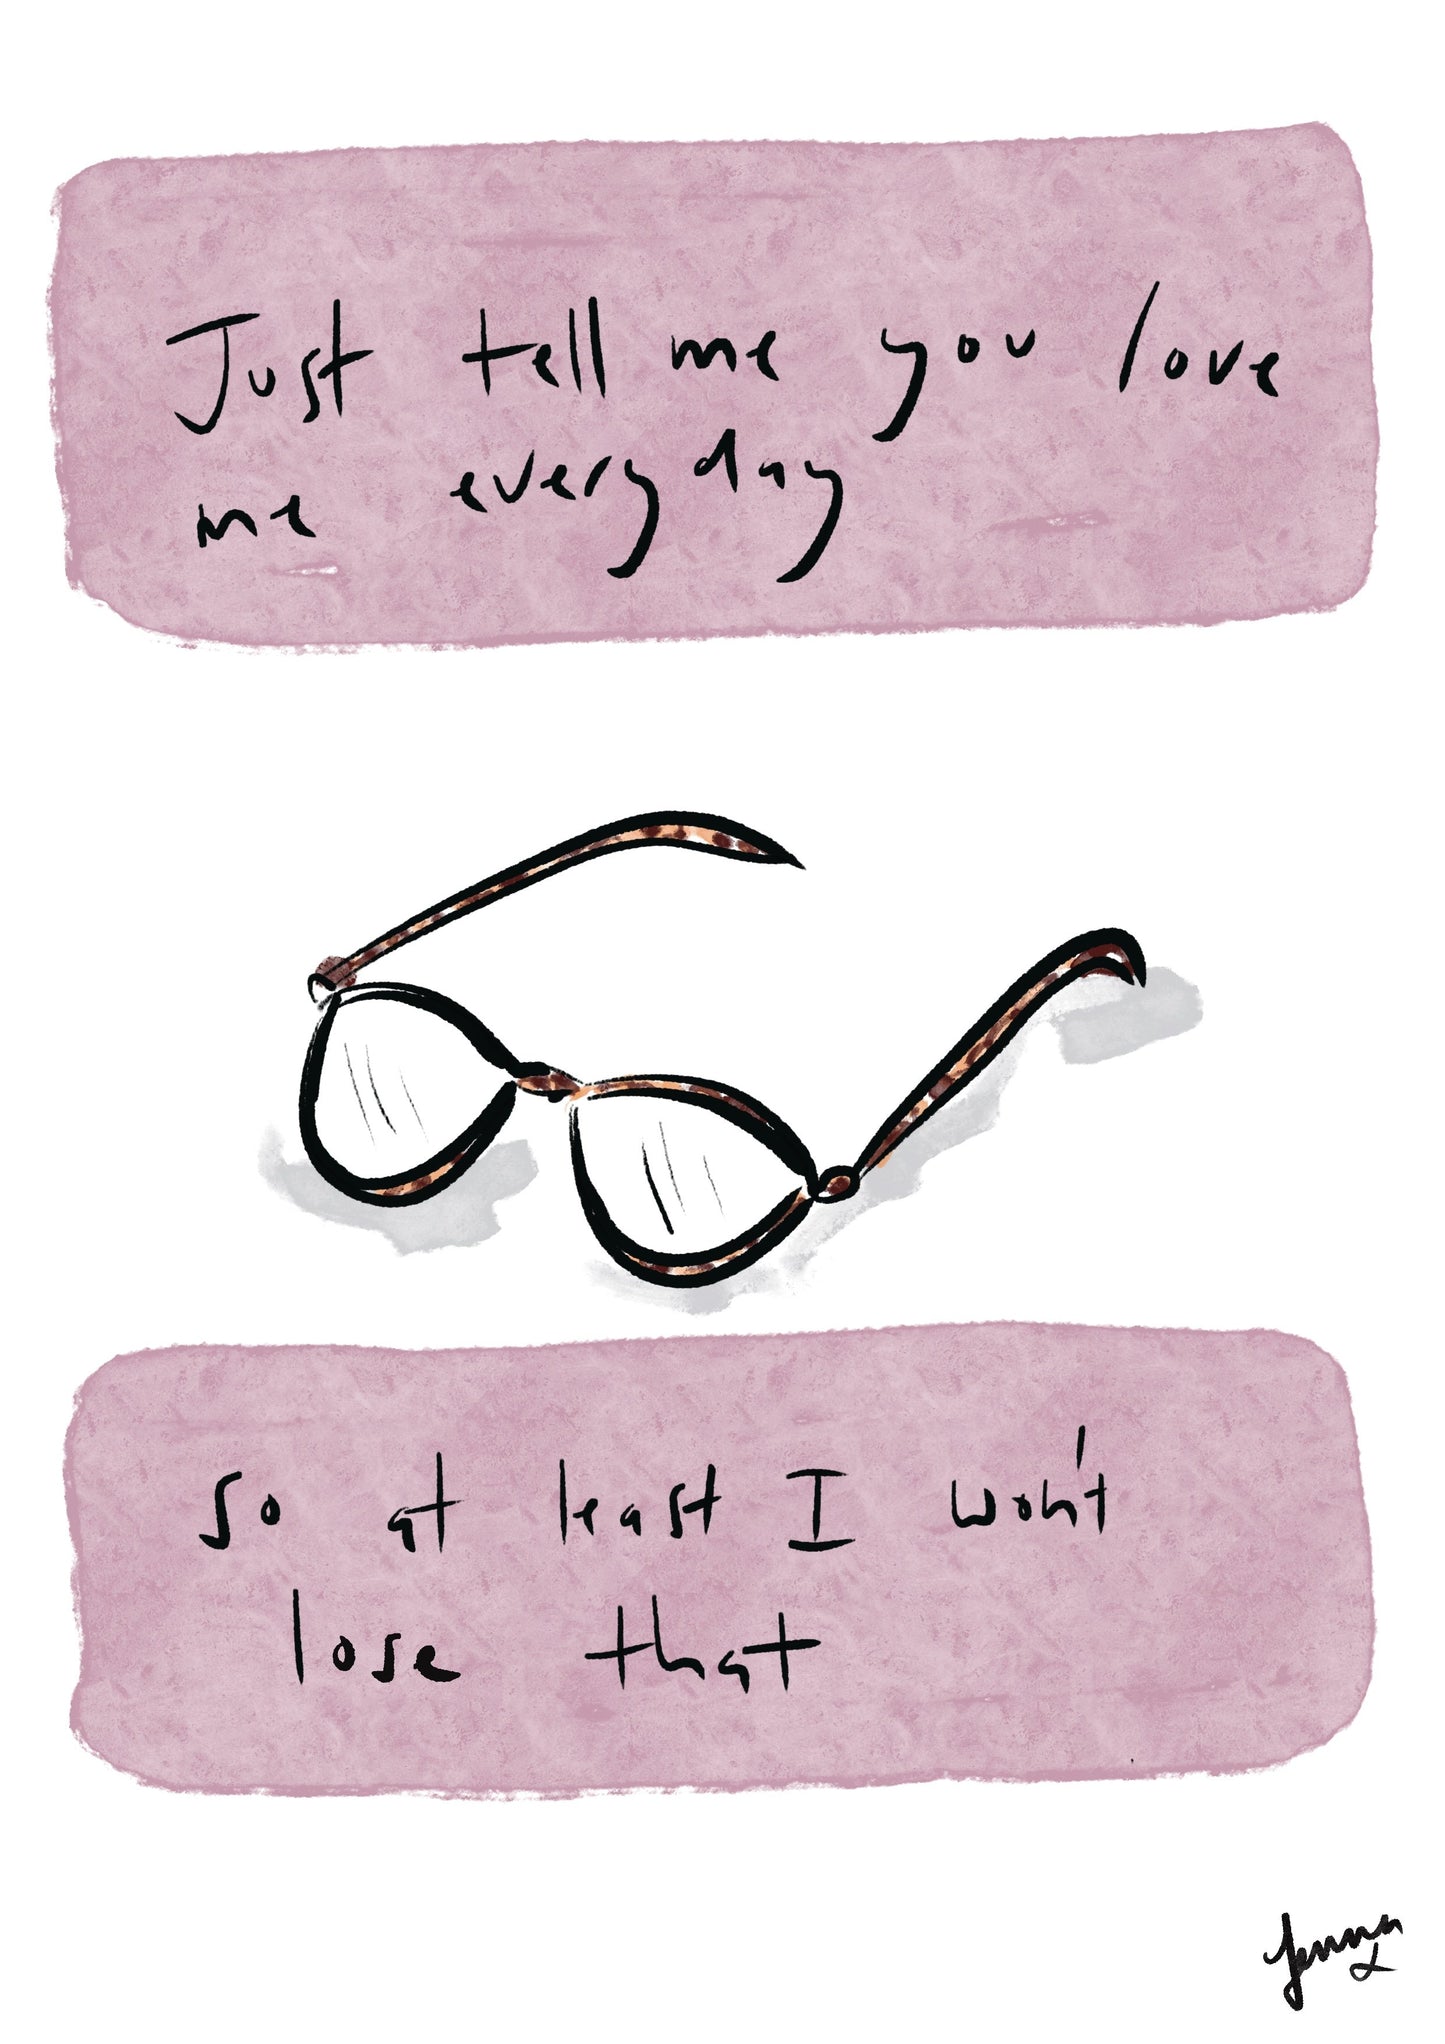 Just tell me you love
me everyday
so at least I won't
lose that
Jenna